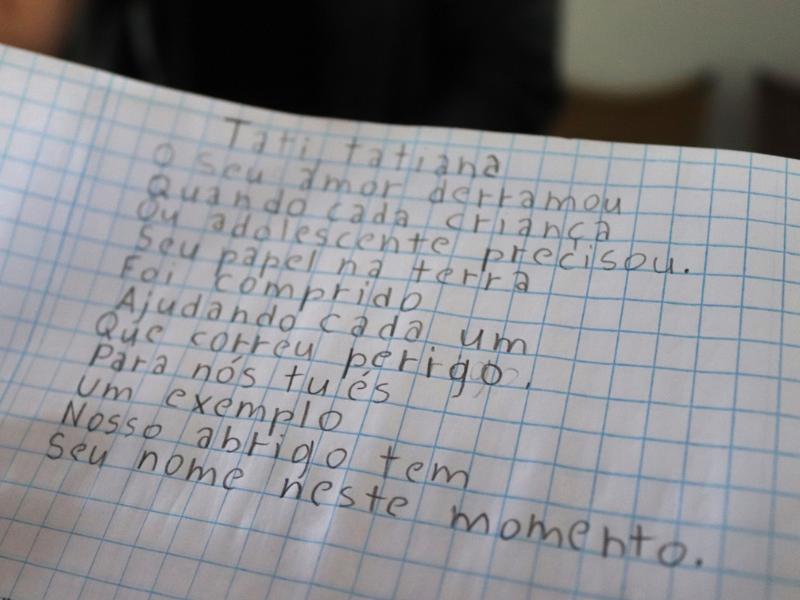 Tati tatiana
O seu amor derramou
Quando cada criança
Ou adolescente precisou.
Seu papel na terra
Foi comprido
Ajudando cada um
Que correu perigo.
Para nós tu és
um exemplo
Nosso abrigo tem
Seu nome neste momento.